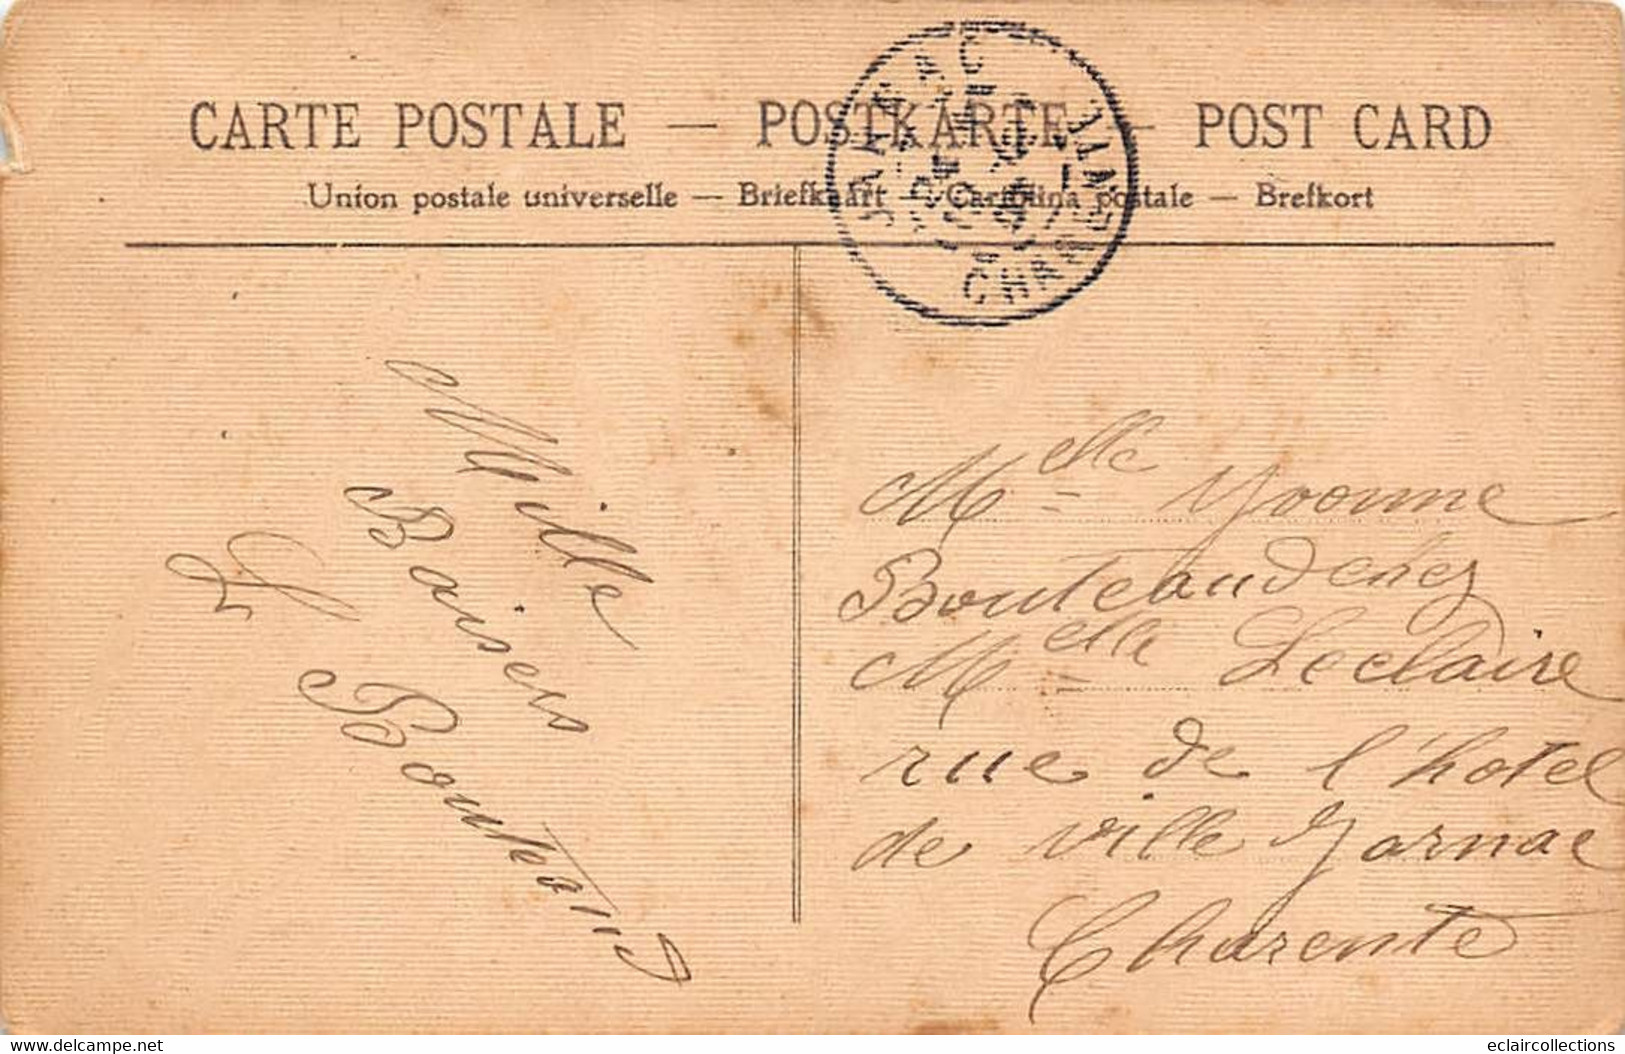 CARTE POSTALE — POSTKARTE — POST CARD
Union postale universelle — Briefkaart — Cartolina postale — Brefkort
JARNAC
CHARENTE
Mille
Baisers
L Bouteaud
Melle Yvonne
Bouteaud chez
Melle Leclaire
rue de l'hotel
de ville Jarnac
Charente
www.delcampe.net
eclaircollections